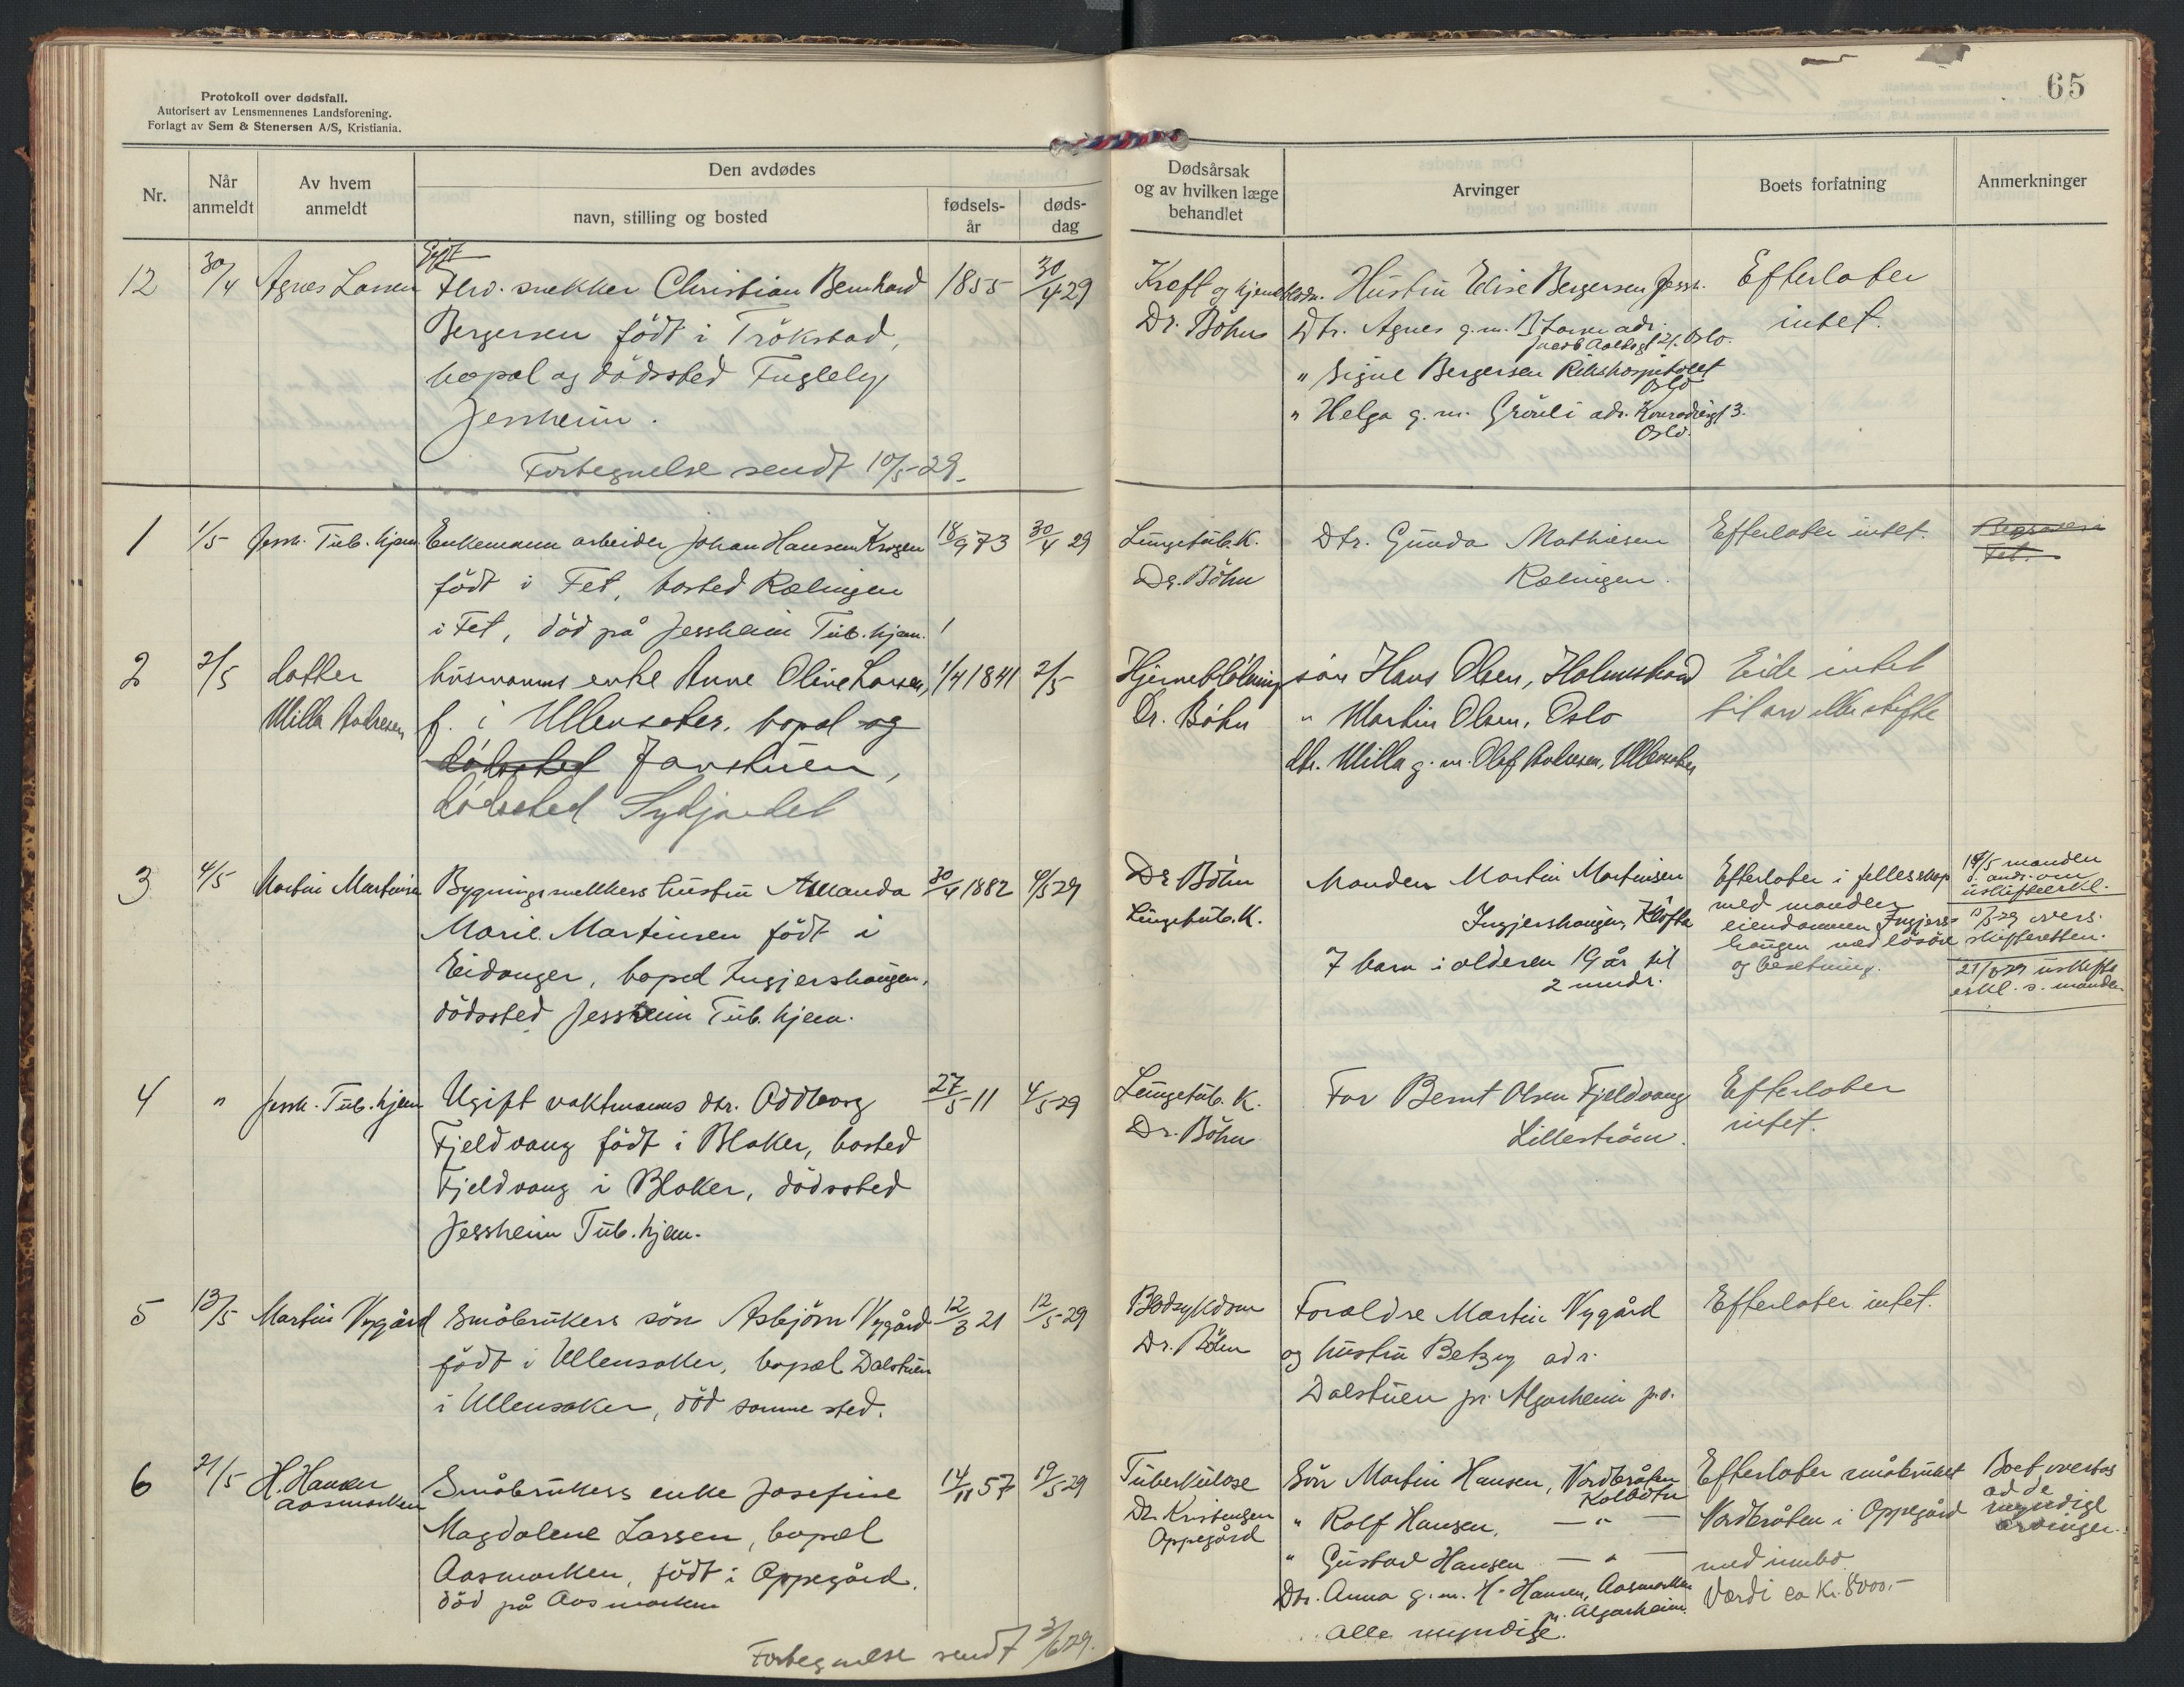 Protokoll over dødsfall.
Autorisert av Lensmennenes Landsforening.
Forlagt av Sem & Stenersen A/S, Kristiania.
65
Nr.
Når anmeldt
Av hvem anmeldt
Den avdødes
navn, stilling og bosted
fødsels-år
døds-dag
Dødsårsak og av hvilken læge behandlet
Arvinger
Boets forfatning
Anmerkninger
12
30/4
Agnes Larsen
Gift
Fhv. snekker Christian Bernhard
Bergersen född i Trökstad,
bopæl og dödssted Fugleby
Jessheim.
1855
30/4 29
Kreft og
Dr. Böhn
Hustru Elise Bergersen Jessh.
Dtr. Agnes g.m. Larsen adr.
Jacob Aallsgt 21. Oslo.
" Signe Bergersen Rikshospitalet
Oslo
" Helga g.m. Gröuli adr. 3.
Oslo.
Efterlater
intet.
Fortegnelse sendt 10/5-29.
1
1/5
Jessh. Tub. hjem
Enkemann arbeider Johan Hansen Krogen
född i Fet, bosted Rælingen
i Fet, död på Jessheim Tub. hjem.
18/9 73
30/4 29
Lungetub. K.
Dr. Böhn
Dtr. Gunda Mathisen
Rælingen.
Efterlater intet.
Fet.
2
2/5
datter
Milla Andresen
husmanns enke Anne Oline Larsen,
f. i Ullensaker, bopæl og
dödssted Janstuen,
dödssted Sydjordet
1/4 1841
2/5
Hjerneblödning
Dr. Böhn
sön Hans Olsen, Holmestrand
" Martin Olsen, Oslo
dtr. Milla g.m. Olaf Andresen, Ullensaker
Eide intet
til arv eller skifte
3
4/5
Martin Martinsen
Bygningssnekkers hustru Amanda
Marie Martinsen född i
Eidanger, bopæl Ingjershaugen,
dödssted Jessheim Tub. hjem.
30/4 1882
4/5 29
Dr. Böhn
Lungetub. K.
Manden Martin Martinsen
Ingjershaugen, Klöfta
7 barn i alderen 19 år til
2 mndr.
Efterlater i fellesskap
med manden
eiendommen Ingjers-
haugen med lösöre
og besetning.
14/5 manden
ands. om
uskifteerkl.
29 overs.
skifteretten.
29 uskifte
erkl. s. manden
4
"
Jessh. Tub. hjem
Ugift vaktmanns dtr. Oddborg
Fjeldvang född i Blaker, bosted
Fjeldvang i Blaker, dödssted
Jessheim Tub. hjem.
27/5 11
4/5 29
Lungetub. K.
Dr. Böhn
Far Bernt Olsen Fjeldvang
Lilleström.
Efterlater
intet.
5
13/5
Martin Nygård
Småbrukers sön Asbjörn Nygård
född i Ullensaker, bopæl Dalstuen
i Ullensaker, död samme sted.
12/3 21
12/5 29
Blodsykdom
Dr. Böhn
Foreldre Martin Nygård
og hustru Betzy adr.
Dalstuen pr. Algarheim p.o.
Efterlater intet.
6
21/5
H. Hansen
Aasmarken
Småbrukers enke Josefine
Magdalene Larsen, bopæl
Aasmarken, född i Oppegård,
död på Aasmarken
14/11 57
19/5 29
Tuberkulose
Dr. Kristensen
Oppegård
Sön Martin Hansen, Nordbråten
Kolbotn
" Rolf Hansen, — " —
" Gustav Hansen — " —
Dtr. Anna g.m. H. Hansen, Aasmarken
pr. Algarheim.
Alle myndige.
Efterlater småbruket
Nordbråten i Oppegård
med innbo
Værdi ca Kr. 8000.-
Boet overtas
av de
myndige
arvinger.
Fortegnelse sendt 3/6 29.